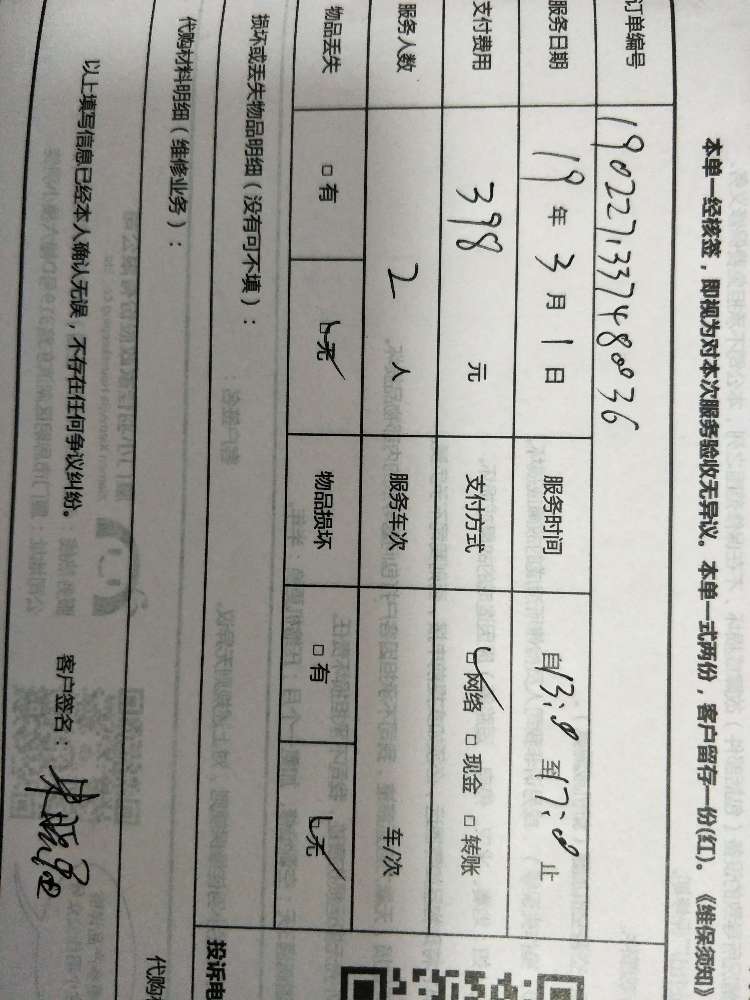 本单一经核签，即视为对本次服务验收无异议。本单一式两份，客户留存一份(红)。《维保须知》
订单编号 190227133748036
服务日期 19 年 3 月 1 日 服务时间 自 13:00 至 17:00 止
支付费用 398 元 支付方式 ☑ 网络 □ 现金 □ 转账
服务人数 2 人 服务车次 车/次
物品丢失 □ 有 ☑ 无 物品损坏 □ 有 ☑ 无
损坏或丢失物品明细（没有可不填）：
代购材料明细（维修业务）：
投诉电
代购
以上填写信息已经本人确认无误，不存在任何争议纠纷。 客户签名：